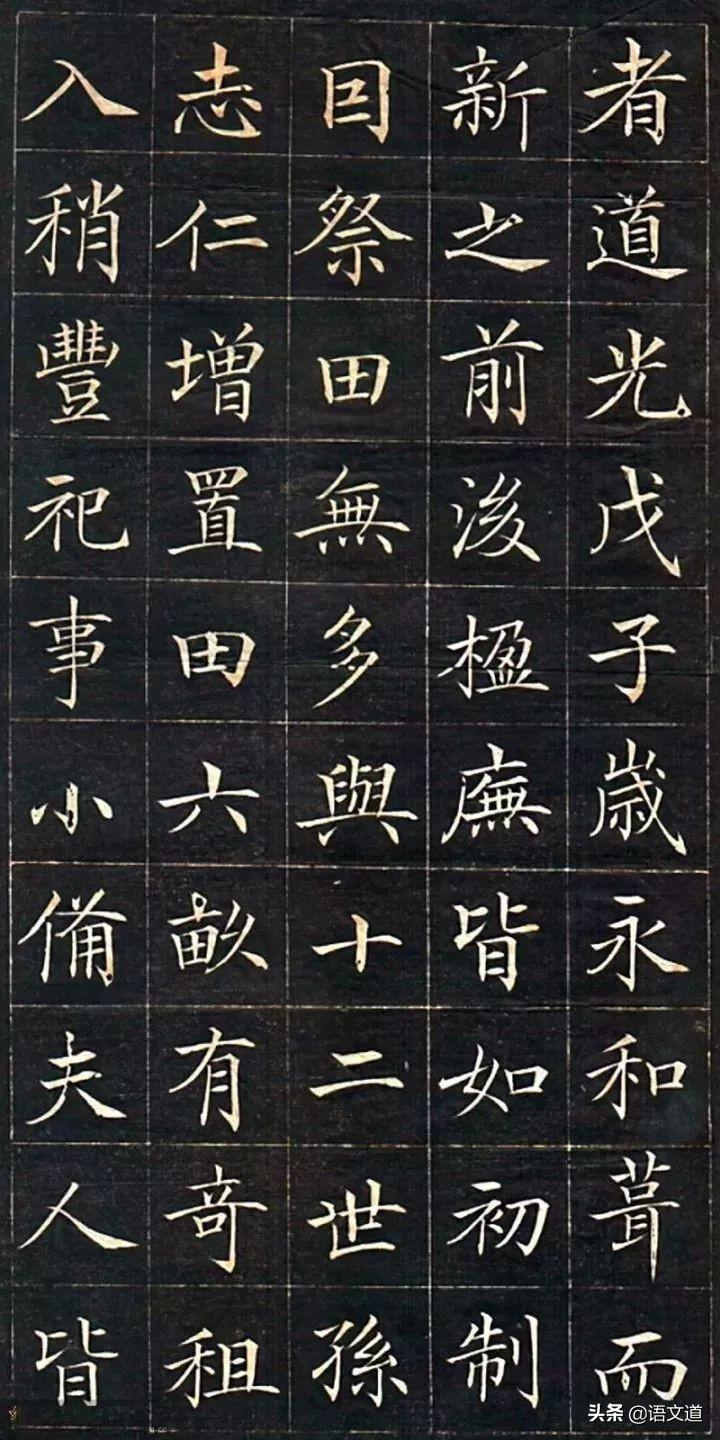 者道光戊子歲永和葺而
新之前後楹廡皆如初制
因祭田無多與十二世孫
志仁增置田六畝有奇租
入稍豐祀事小備夫人皆
头条 @语文道